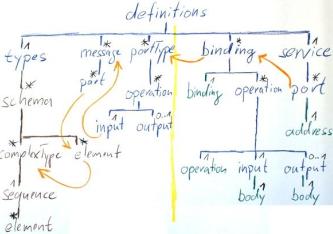 definitions
1 * * * 1
types message portType binding service
* * * 1 * *
schema part operation binding operation port
1 0..1 1
input output address
* * 1 1 0..1
complexType element operation input output
1 1 1
sequence body body
*
element